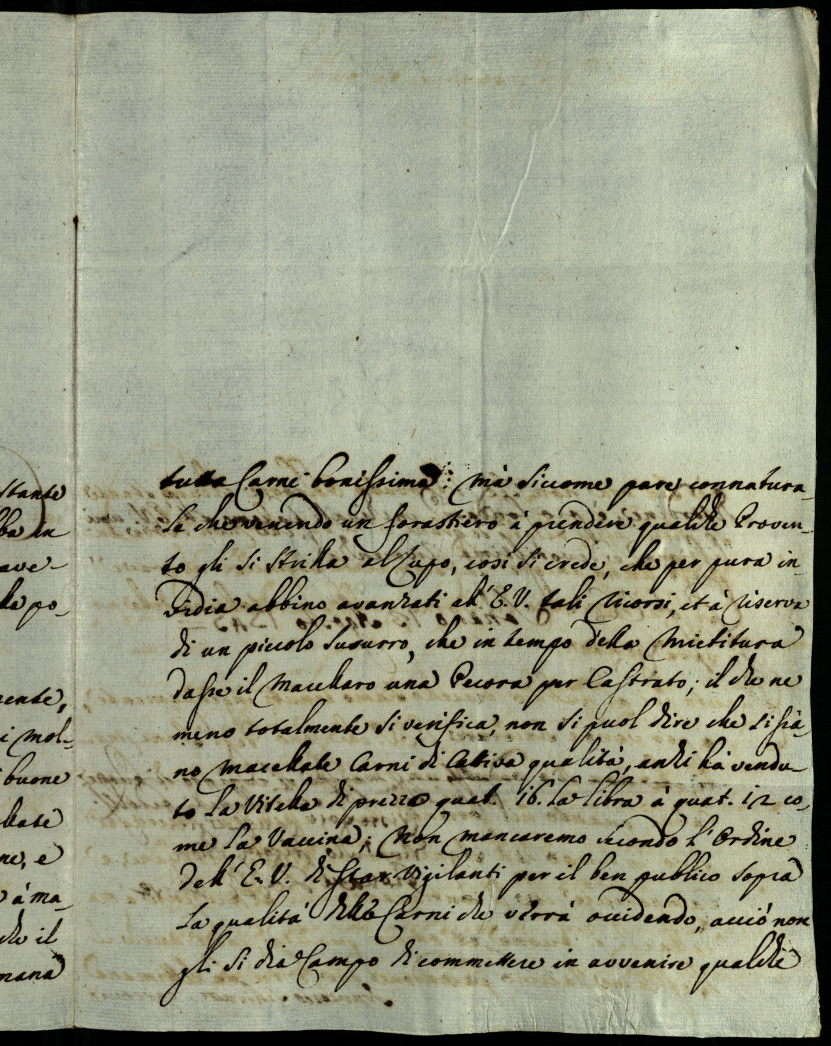 stante
bba in
ave-
he po-
mente,
i mol-
buone
ne, e
à ma-
che il
mana
tutta Carni bonissime: mà siccome pare connatura-
le che venendo un forastiero à prendere qualche Proven-
to gli si strilla al Lupo, così si crede, che per pura in-
vidia abbino avanzati all'E.V. tali ricorsi, et à riserva
di un piccolo susurro, che in tempo della Mietitura
dasse il Macellaro una Pecora per Castrato; il che ne
meno totalmente si verifica, non si puol dire che si sia-
no macellate Carni di Cattiva qualità, anzi hà vendu-
to la Vitella di prezzo quat. 16. la libra à quat. 12 co-
me la Vaccina; Non mancaremo secondo l'Ordine
dell'E.V. di star vigilanti per il ben publico sopra
la qualità delle Carni che verrà occidendo, acciò non
gli si dia Campo di commettere in avvenire qualche